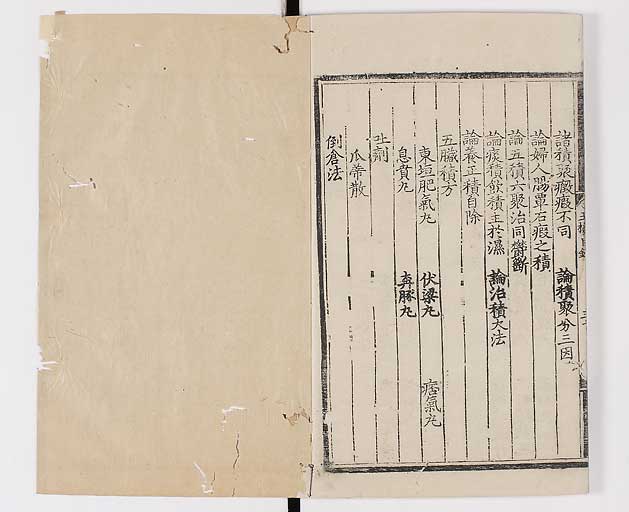 諸積聚癥瘕不同 論積聚分三因
論婦人腸覃石瘕之積
論五積六聚治同鬱斷
論痰積飲積主於濕 論治積大法
論養正積自除
五臟積方
東垣肥氣丸 伏梁丸 痞氣丸
息賁丸 奔豚丸
吐劑
瓜蒂散
倒倉法